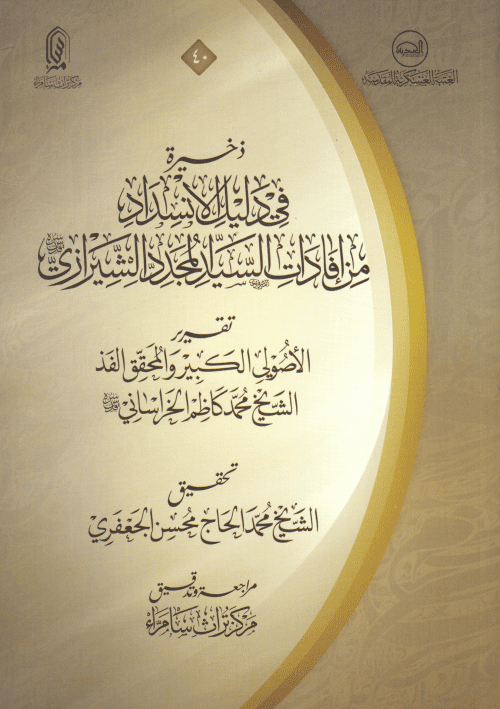 العتبة العسكرية المقدسة
مركز تراث سامراء
٤٠
ذخيرة
في دليل الانسداد
من إفادات السيد المجدد الشيرازي
تقرير
الأصولي الكبير والمحقق الفذ
الشيخ محمد كاظم الخراساني
تحقيق
الشيخ محمد الحاج محسن الجعفري
مراجعة وتدقيق
مركز تراث سامراء